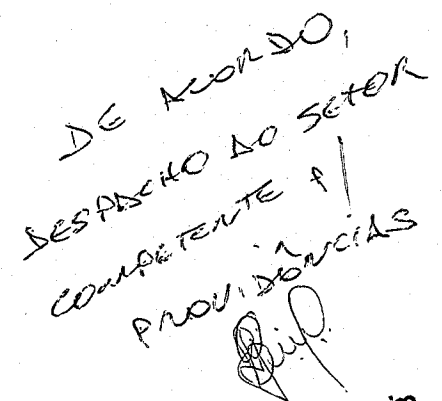 DE ACORDO,
DESPACHO AO SETOR
COMPETENTE P/
PROVIDÊNCIAS